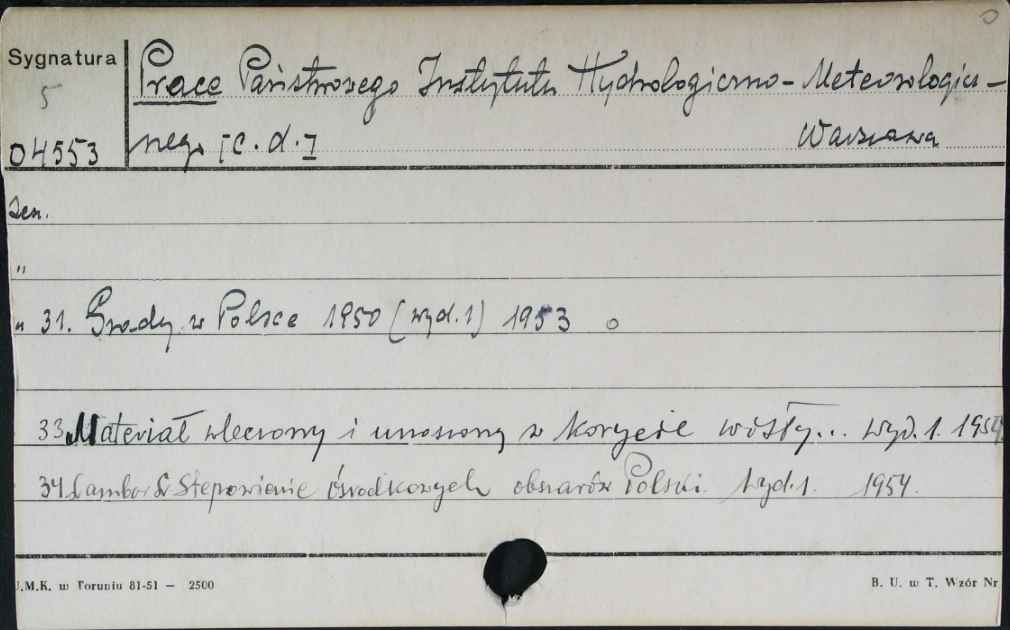 Sygnatura Prace Państwowego Instytutu Hydrologiczno-Meteorologicz-
5
04553 nego [c.d.] Warszawa
Zesz.
"
" 31. Grady w Polsce 1950 (wyd.1) 1953 o
33 Materiał wleczony i unoszony w korycie Wisły... wyd. 1. 1954
34 Lambor St Stepowienie środkowych obszarów Polski. wyd.1. 1954.
U.M.K. w Toruniu 81-51 — 2500 B. U. w T. Wzór Nr